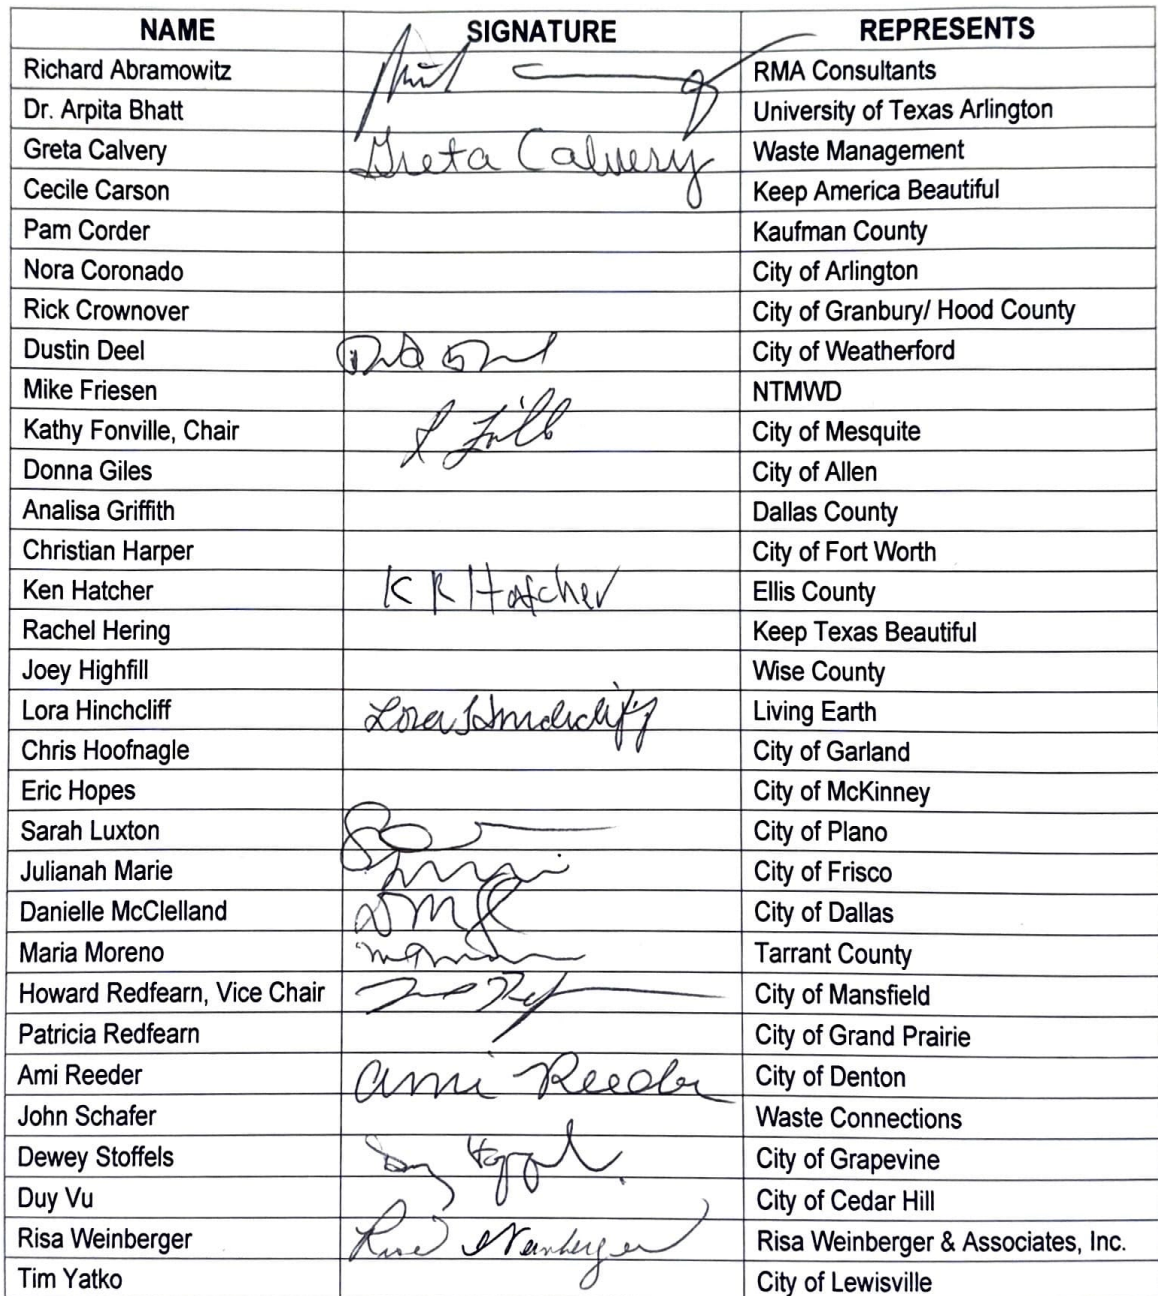 NAME SIGNATURE REPRESENTS
Richard Abramowitz RMA Consultants
Dr. Arpita Bhatt University of Texas Arlington
Greta Calvery Greta Calvery Waste Management
Cecile Carson Keep America Beautiful
Pam Corder Kaufman County
Nora Coronado City of Arlington
Rick Crownover City of Granbury/ Hood County
Dustin Deel City of Weatherford
Mike Friesen NTMWD
Kathy Fonville, Chair City of Mesquite
Donna Giles City of Allen
Analisa Griffith Dallas County
Christian Harper City of Fort Worth
Ken Hatcher K R Hatcher Ellis County
Rachel Hering Keep Texas Beautiful
Joey Highfill Wise County
Lora Hinchcliff Lora Hinchcliff Living Earth
Chris Hoofnagle City of Garland
Eric Hopes City of McKinney
Sarah Luxton City of Plano
Julianah Marie City of Frisco
Danielle McClelland City of Dallas
Maria Moreno Tarrant County
Howard Redfearn, Vice Chair City of Mansfield
Patricia Redfearn City of Grand Prairie
Ami Reeder Ami Reeder City of Denton
John Schafer Waste Connections
Dewey Stoffels City of Grapevine
Duy Vu City of Cedar Hill
Risa Weinberger Risa Weinberger Risa Weinberger & Associates, Inc.
Tim Yatko City of Lewisville